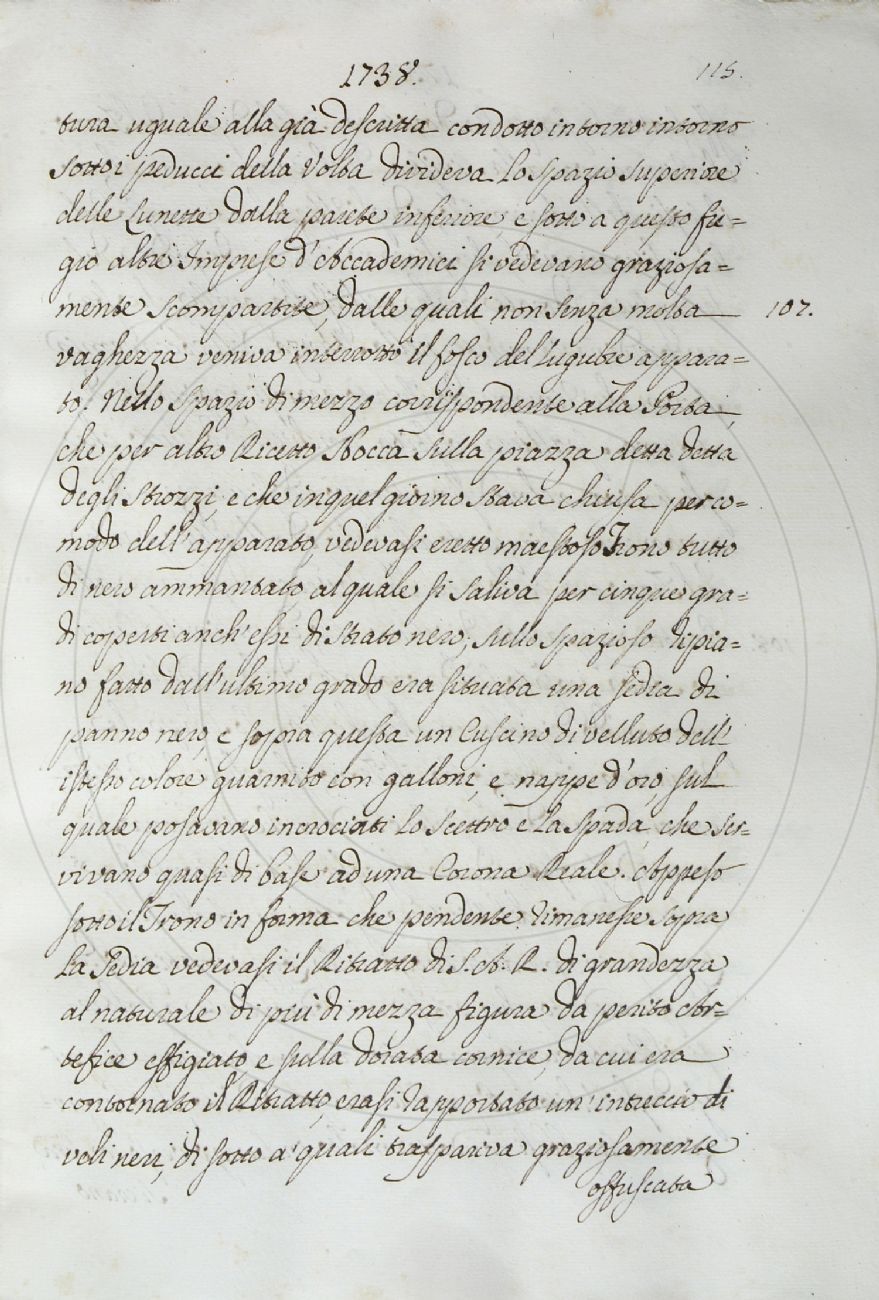 1738. 115.
tura uguale alla già descritta condotto intorno intorno
sotto i peducci della Volta divideva lo spazio superiore
delle Lunette dalla parete inferiore, e sotto a questo fre=
gio altre Imprese d'Accademici si vedevano graziosa=
mente scompartite, dalle quali non senza molta 107.
vaghezza veniva interrotto il fosco del lugubre appara=
to. Nello spazio di mezzo corrispondente alla Porta,
che per altro Ricetto sbocca sulla piazza detta detta
degli Strozzi, e che in quel giorno stava chiusa per co=
modo dell'apparato, vedevasi eretto maestoso Trono tutto
di nero ammantato, al quale si saliva per cinque gra=
di coperti anch'essi di strato nero; sullo spazioso ripia=
no fatto dall'ultimo grado era situata una sedia di
panno nero, e sopra questa un Cuscino di velluto dell'
istesso colore guarnito con galloni, e nappe d'oro, sul
quale posavano incrociati lo scettro e la spada, che ser=
vivano quasi di base ad una Corona Reale. Appeso
sotto il Trono in forma che pendente rimanesse sopra
la sedia vedevasi il Ritratto di S. A. R. di grandezza
al naturale di più di mezza figura da perito Ar=
tefice effigiato, e sulla dorata cornice, da cui era
contornato il Ritratto, erasi rapportato un'intreccio di
veli neri, di sotto a' quali traspariva graziosamente
offuscata